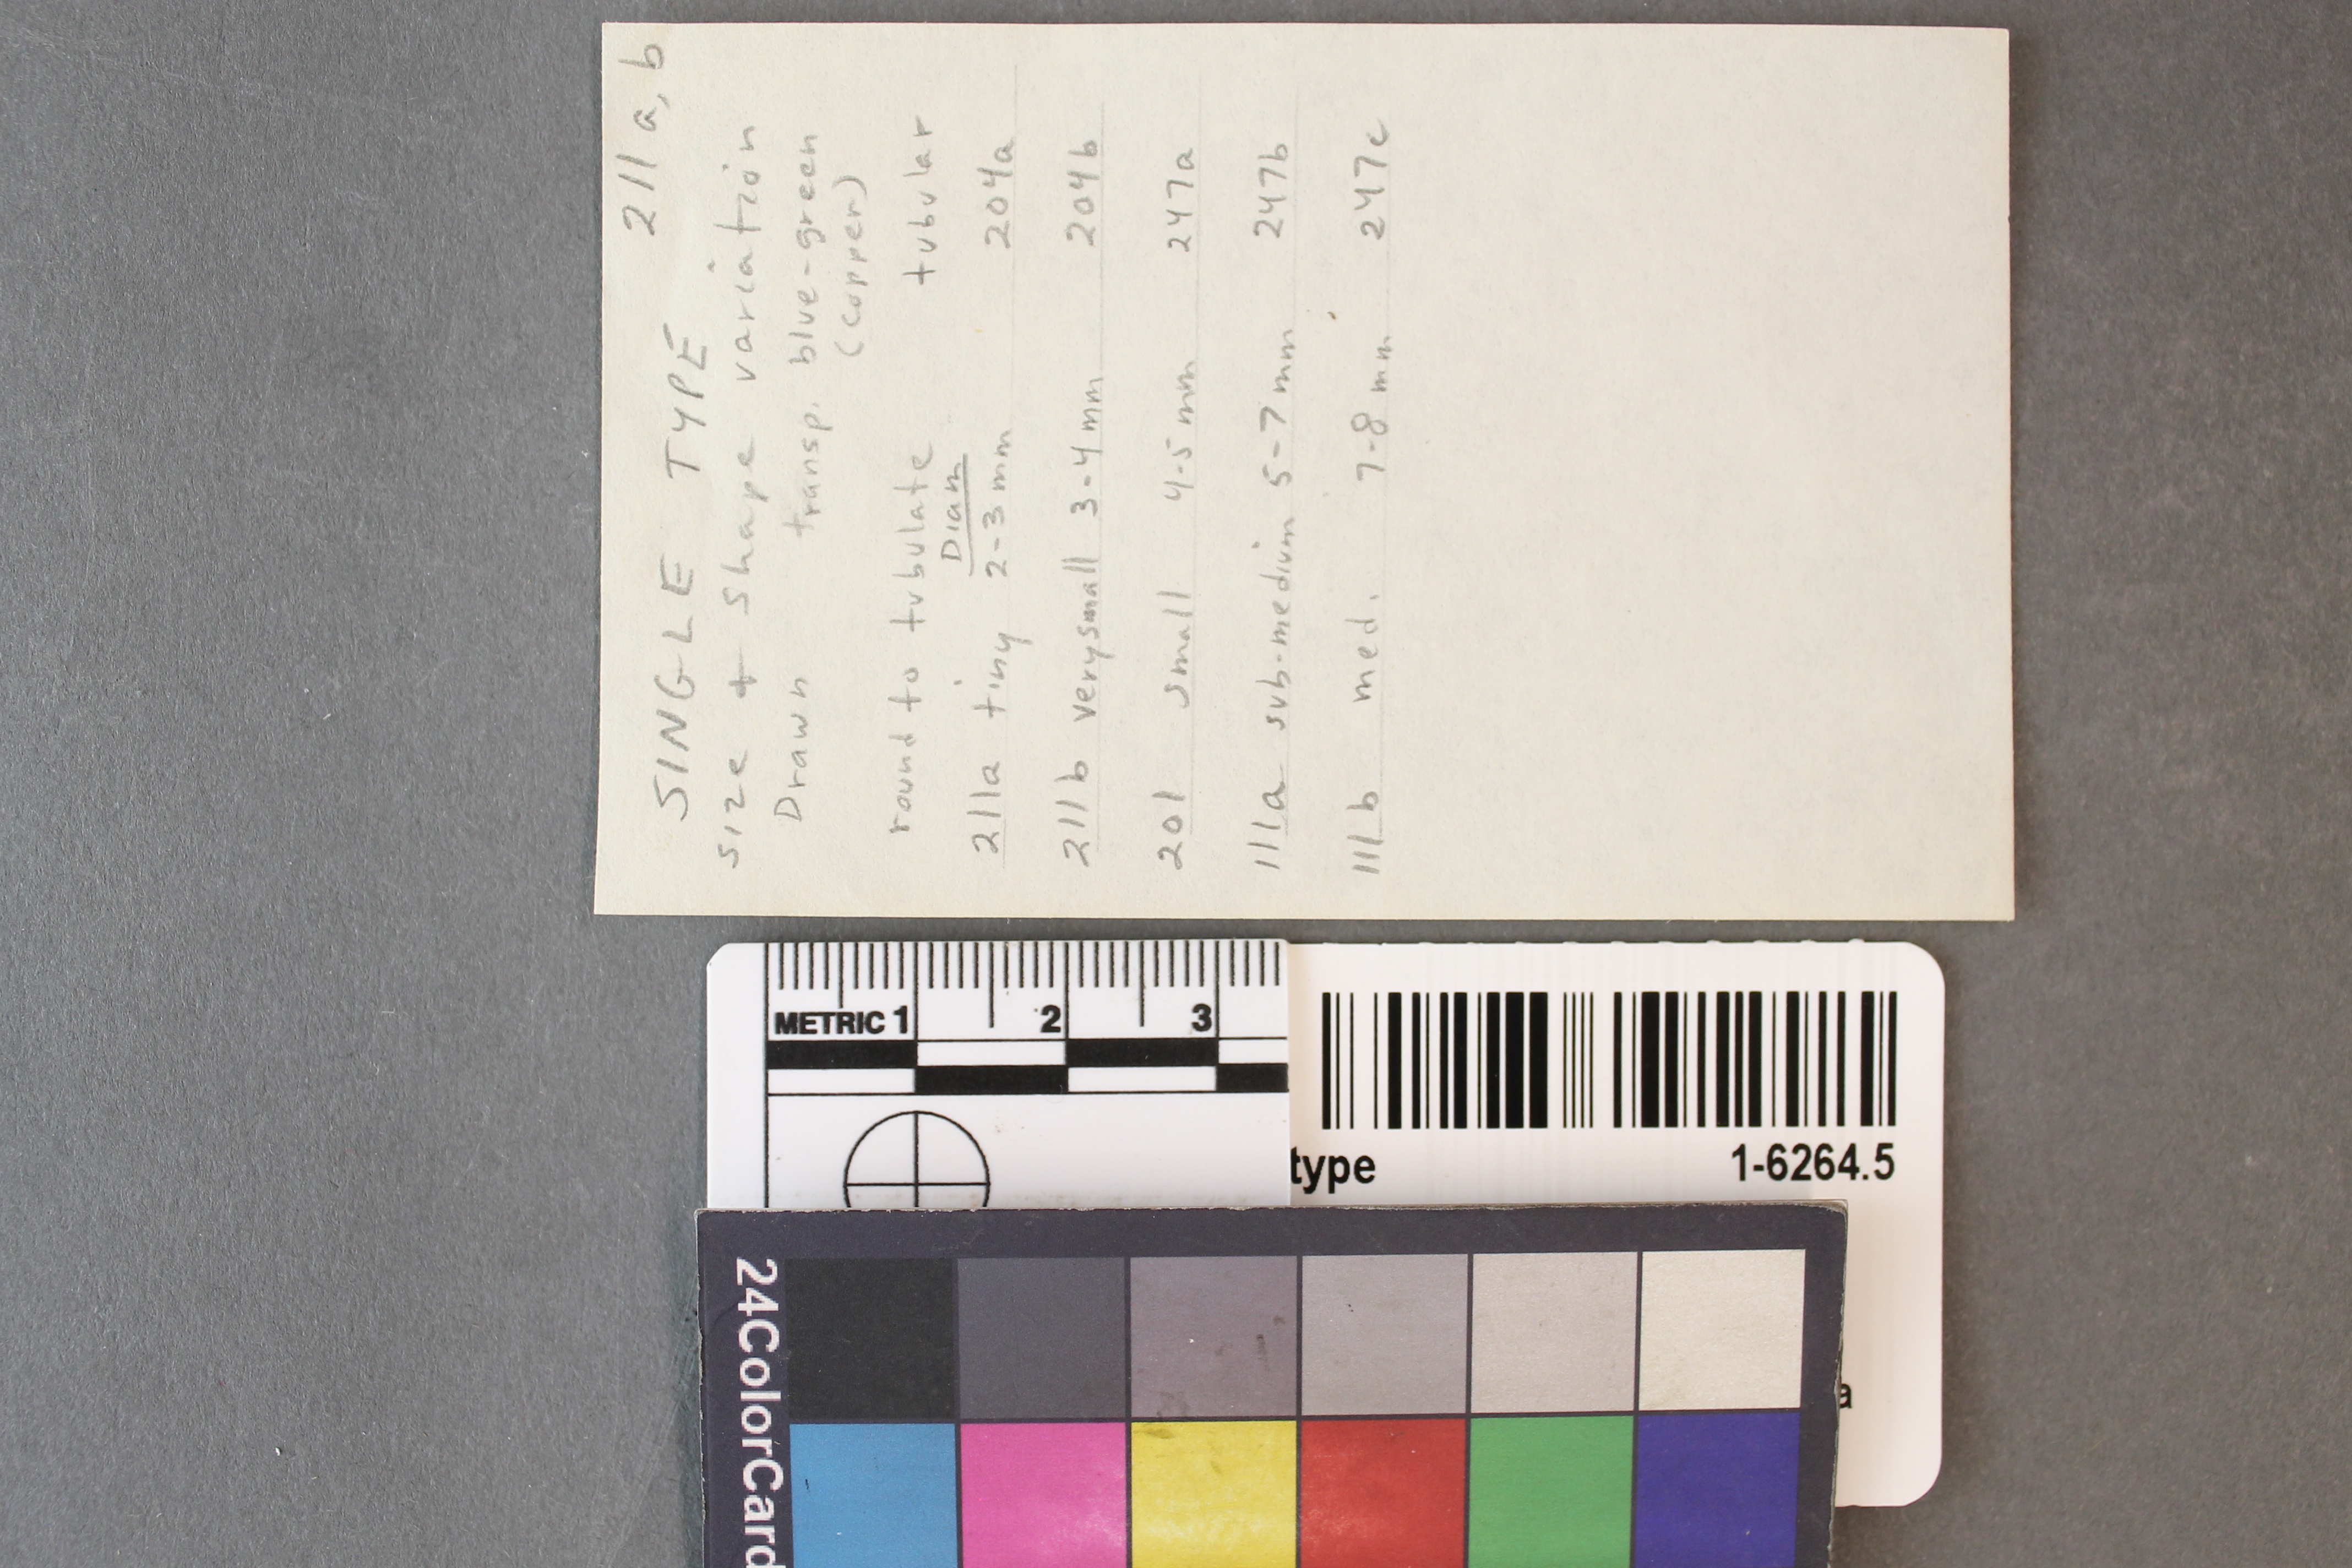 211a, b
SINGLE TYPE
size + shape variation
Drawn transp. blue-green
(copper)
round to tubulate tubular
Diam
211a tiny 2-3 mm 204a
211b very small 3-4 mm 204b
201 small 4-5 mm 247a
111a sub-medium 5-7 mm 247b
111b med. 7-8 mm 247c
METRIC 1 2 3
type 1-6264.5
a
24ColorCard